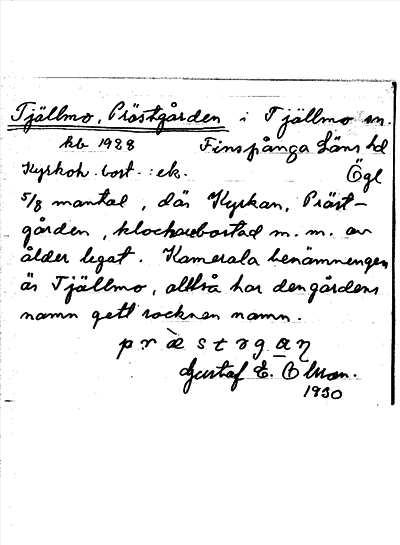 Tjällmo, Prästgården i Tjällmo sn.
kb 1928 Finspånga Läns hd
Kyrkoh. bost. : ek. Ögl
5/8 mantal, där Kyrkan, Präst-
gården, klockarebostad m. m. av
ålder legat. Kamerala benämningen
är Tjällmo, alltså har den gårdens
namn gett socknen namn.
Gustaf E. Olsson.
1930